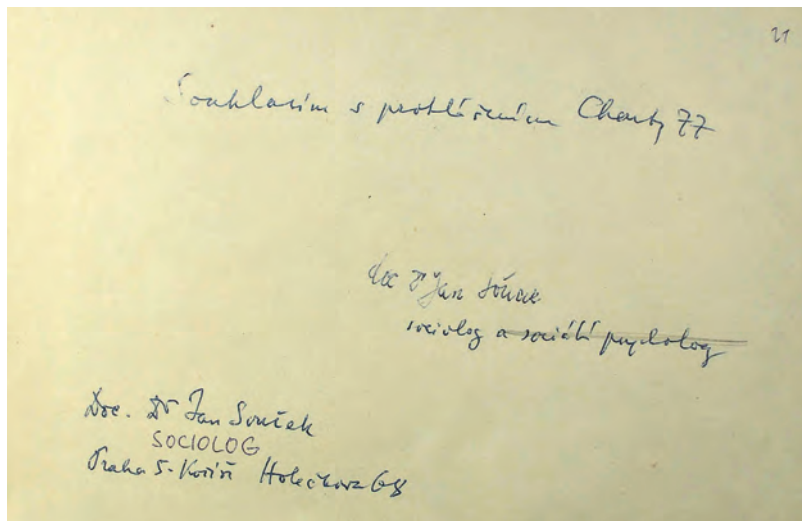 21
Souhlasím s prohlášením Charty 77
doc Dr Jan Souček
sociolog a sociální psycholog
Doc. Dr Jan Souček
SOCIOLOG
Praha 5-Košíře Holečkova 68